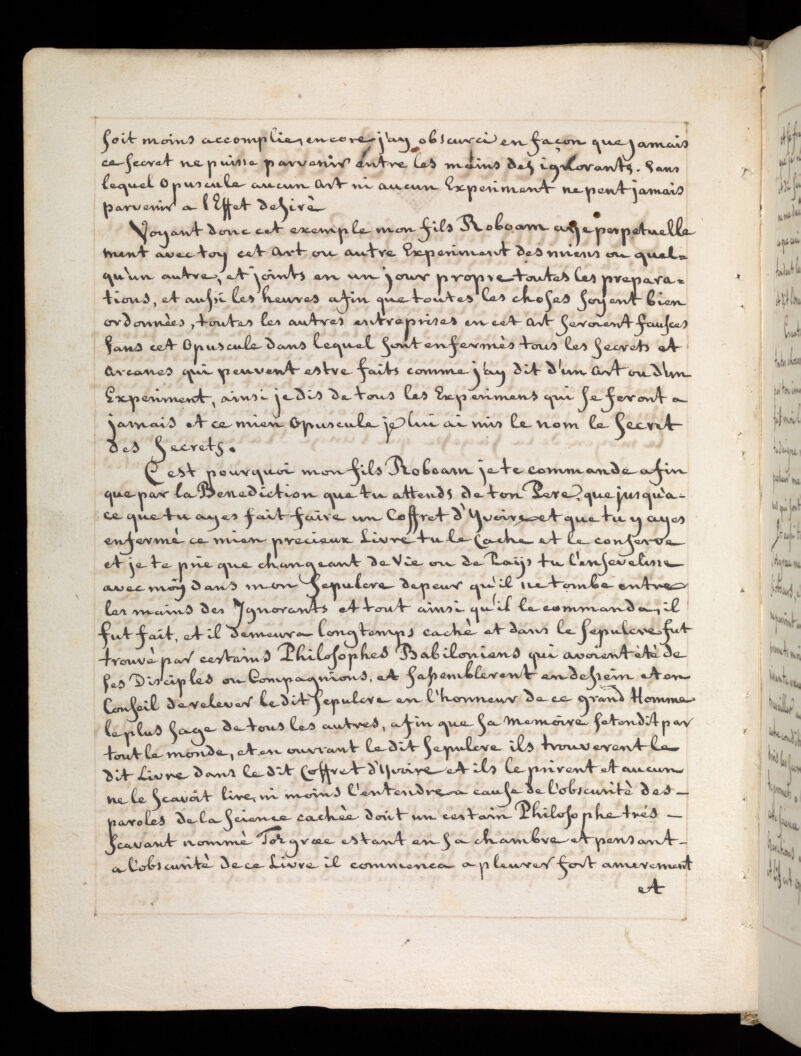 soit moins accomplie, encore j'ay obscurci en façon que jamais
ce secret ne puisse parvenir entre les mains des ignorants. Sans
lequel Opuscule aucun Art ni aucun Experiment ne peut jamais
parvenir a l'Effet desirè
Voyant donc cet exemple mon fils Roboam aye perpetuelle
ment avec toy cet Art ou autre Experiment des miens ou quel-
qu'un autre, et joints en un jour propre toutes les prepara-
tions, et aussi les heures afin que toutes les choses soyent bien
ordonnées, toutes les autres entreprises en cet Art seroient fausses
sans cet Opuscule dans lequel sont enfermès tous les secrets et
Arcanes qui peuvent estre faits comme j'ay dit d'un Art ou d'un
Experiment, ainsi je dis de tous les Experimens qui se feront a
jamais et ce mien Opuscule je lui ai mis le nom le Secret
des Secrets.
C'est pourquoi mon fils Roboam je te commande afin
que par la Benediction que tu attends de ton Pere, que jusqu'a-
ce que tu ayes fait faire un Coffret d'Yvoire et que tu y ayes
enfermè ce mien precieux Livre tu le Cache et le conserve
et je te prie que changeant de Vie ou de Païs tu l'ensevelisse
avec moy dans mon Sepulcre de peur qu'il ne tombe entre
les mains des Ignorants et tout ainsi qu'il le commanda, il
fut fait, et il demeura longtemps cachè et dans le sepulcre fut
trouvè par certains Philosophes Babiloniens qui avoient ètè de
ses Disciples ou Compagnions, et s'assemblerent en dessein et en
Conseil de relever le dit Sepulcre en l'honneur de ce grand Homme
le plus sage de tous les autres, afin que sa memoire setendit par
tout le monde, et en ouvrant le dit Sepulcre ils trouverent le
dit Livre dans le dit Coffret d'Yvoire et ils le prirent et aucun
ne le Scavoit lire, ni moins l'entendre a cause de l'obscuritè des -
paroles de la Science cachèe dont un certain Philosophe trés -
Scavant nommè Tozgræe estant en sa chambre et pensant -
a l'obscuritè de ce Livre il commenca a pleurer fort amerement
et